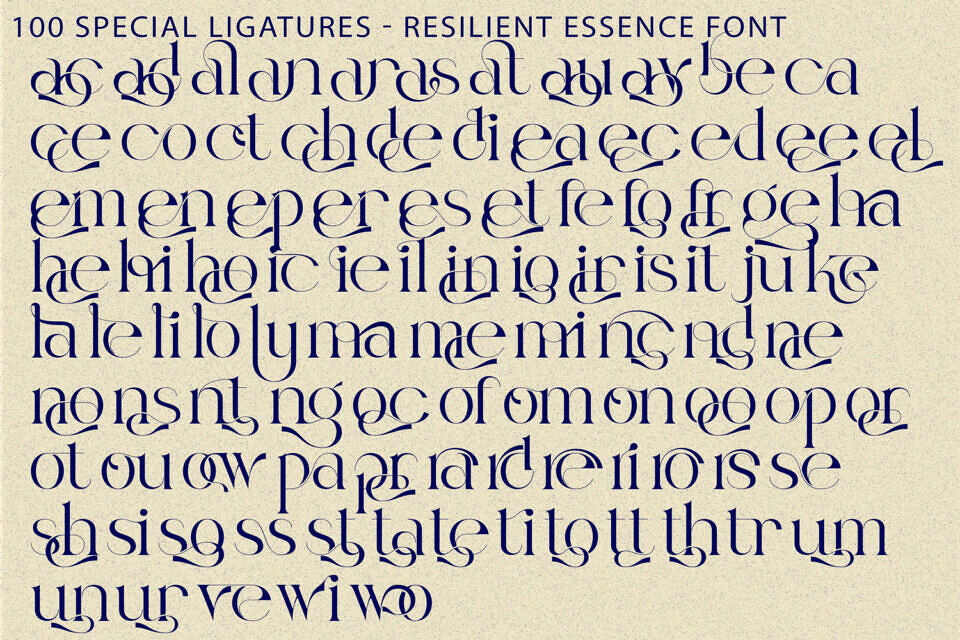 100 SPECIAL LIGATURES - RESILIENT ESSENCE FONT
ac ad al an ar as at au av be ca
ce co ct ch de di ea ec ed ee el
em en ep er es et fe fo fr ge ha
he hi ho ic ie il in io ir is it ju ke
la le li lo ly ma me mi nc nd ne
no ns nt ng oc of om on oo op or
ot ou ow pa pr ra rd re ri ro rs se
sh si so ss st ta te ti to tt th tr um
un ur ve wi wo